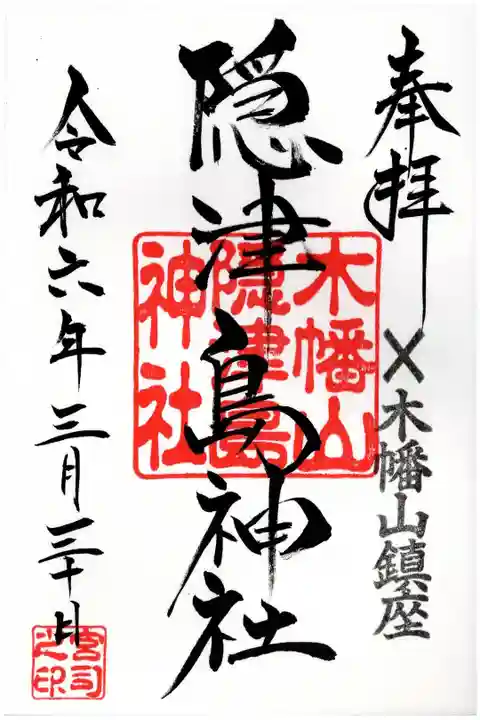 奉拝
×木幡山鎮座
隠津島神社
木幡山
隠津島
神社
令和六年三月三十日
宮司
之印